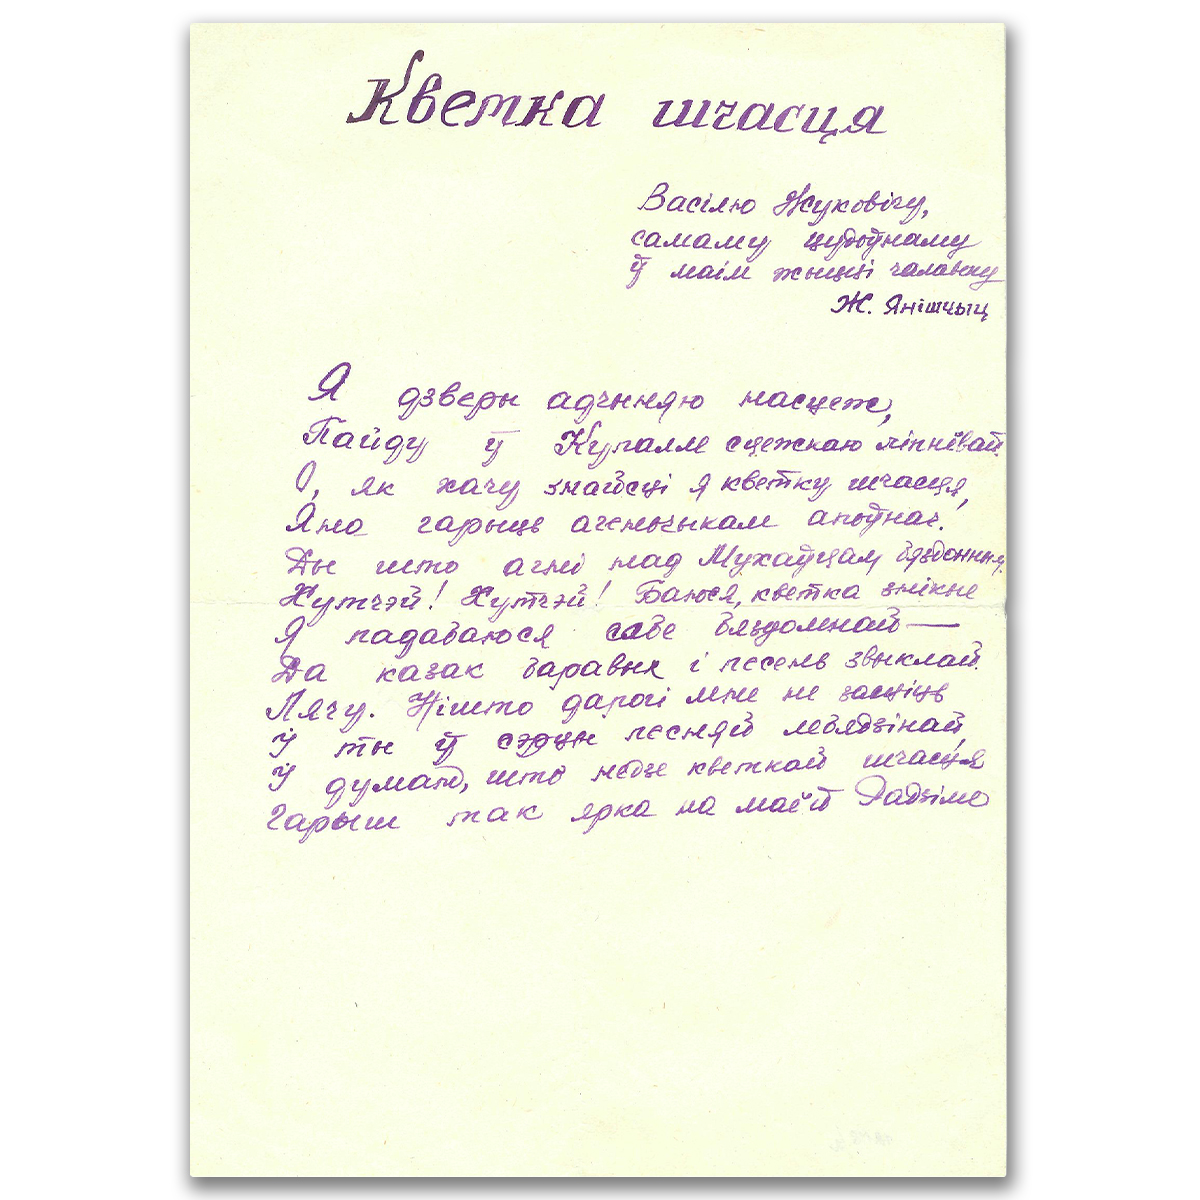 Кветка шчасця
Васілю Жуковічу,
самаму цудоўнаму
ў маім жыцці чалавеку
Ж. Янішчыц
Я дзверы адчыняю насцеж,
Пайду ў Купалле сцежкаю ліпнёвай.
О, як хачу знайсці я кветку шчасця,
Яна гарыць агеньчыкам апоўнач.
Ды што агні над Мухаўцам бяздонным.
Хутчэй! Хутчэй! Баюся, кветка знікне
Я падабаюся сабе бяздомнай —
Да казак баравых і песень звыклай.
Лячу. Нішто дарогі мне не засціць
І ты ў сэрцы песняй лебядзінай,
І думаю, што недзе кветкай шчасця
Гарыш так ярка на маёй Радзіме